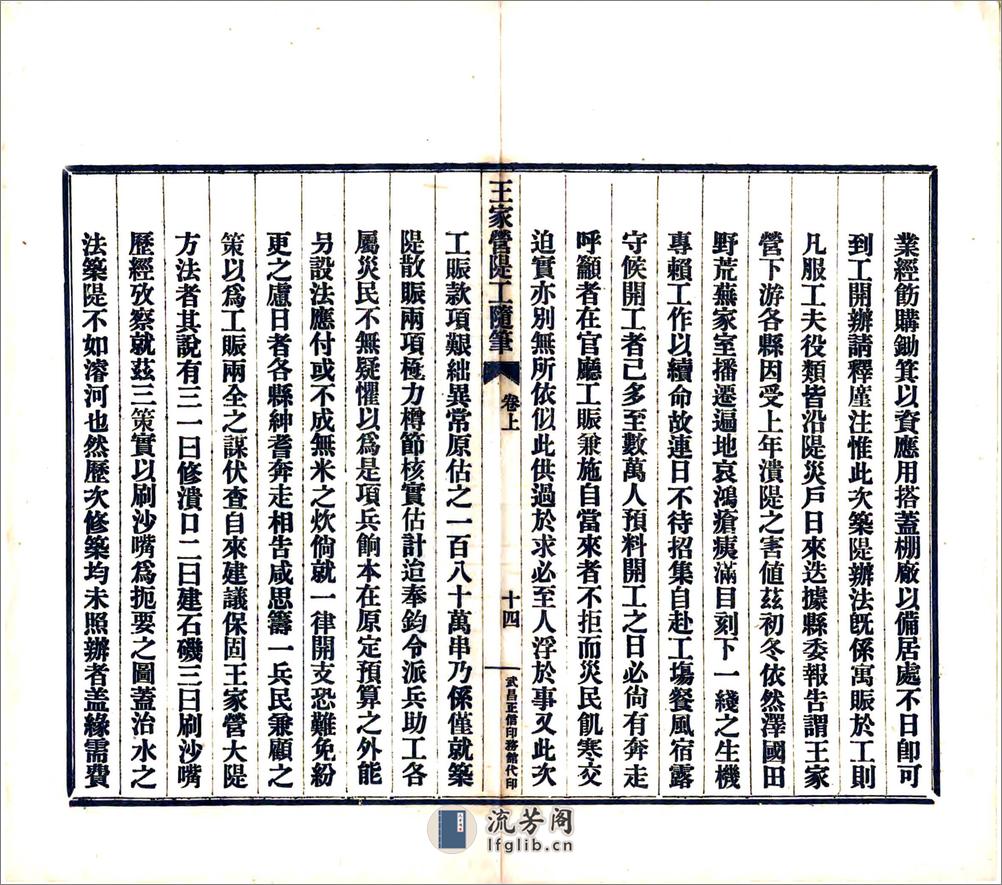 業經飭購鋤箕以資應用搭蓋棚廠以備居處不日卽可
到工開辦請釋廑注惟此次築隄辦法旣係寓賑於工則
凡服工夫役類皆沿隄災戶日來迭據縣委報告謂王家
營下游各縣因受上年潰隄之害値茲初冬依然澤國田
野荒蕪家室播遷遍地哀鴻瘡痍滿目刻下一綫之生機
專賴工作以續命故連日不待招集自赴工塲餐風宿露
守候開工者已多至數萬人預料開工之日必尙有奔走
呼籲者在官廳工賑兼施自當來者不拒而災民飢寒交
迫實亦別無所依似此供過於求必至人浮於事又此次
王家營隄工隨筆
卷上
十四
武昌正信印務館代印
工賑款項艱絀異常原估之一百八十萬串乃係僅就築
隄散賑兩項極力樽節核實估計迨奉鈞令派兵助工各
屬災民不無疑懼以爲是項兵餉本在原定預算之外能
另設法應付或不成無米之炊倘就一律開支恐難免紛
更之慮日者各縣紳耆奔走相告咸思籌一兵民兼顧之
策以爲工賑兩全之謀伏查自來建議保固王家營大隄
方法者其說有三一曰修潰口二曰建石磯三曰刷沙嘴
歷經攷察就茲三策實以刷沙嘴爲扼要之圖蓋治水之
法築隄不如濬河也然歷次修築均未照辦者盖緣需費
流芳阁
lfglib.cn